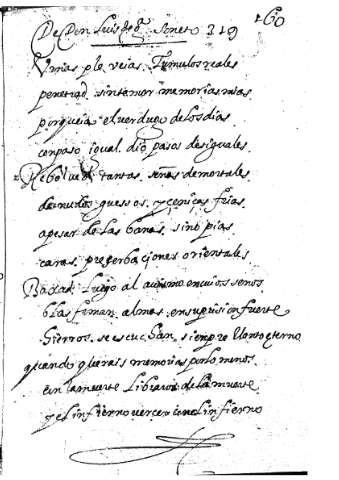 De Don Luis de g.ª Soneto 319
160
Vrnas ple veias. Tumulos reales
penetrad sin temor memorias mias
porque ia el verdugo de los dias
con paso igual. dio pasos desiguales.
Rebolued tantas. señas de mortales
desnudos guessos. y ceniças frias
a pesar de las banas. sino pias
caras. preserbaciones orientales
Baxad luego al auismo en cuios senos
blasfeman almas. en su prision fuerte
Gierros. se escuchan siempre llanto eterno
quando querais memorias por lo menos.
con la muerte libraros de la muerte
y el infierno vencer con el infierno